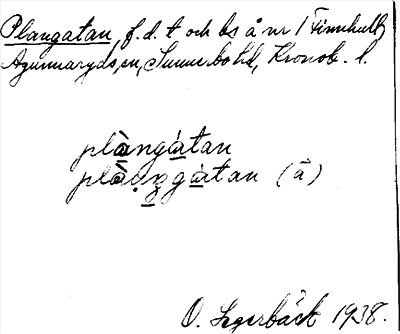 Plangatan, f.d. t och bs å nr 1 Finnhult,
Agunnaryds sn, Sunnerbo hd, Kronob. l.
plàngátan
plàngàtan (å)
O. Segerbäck 1938.